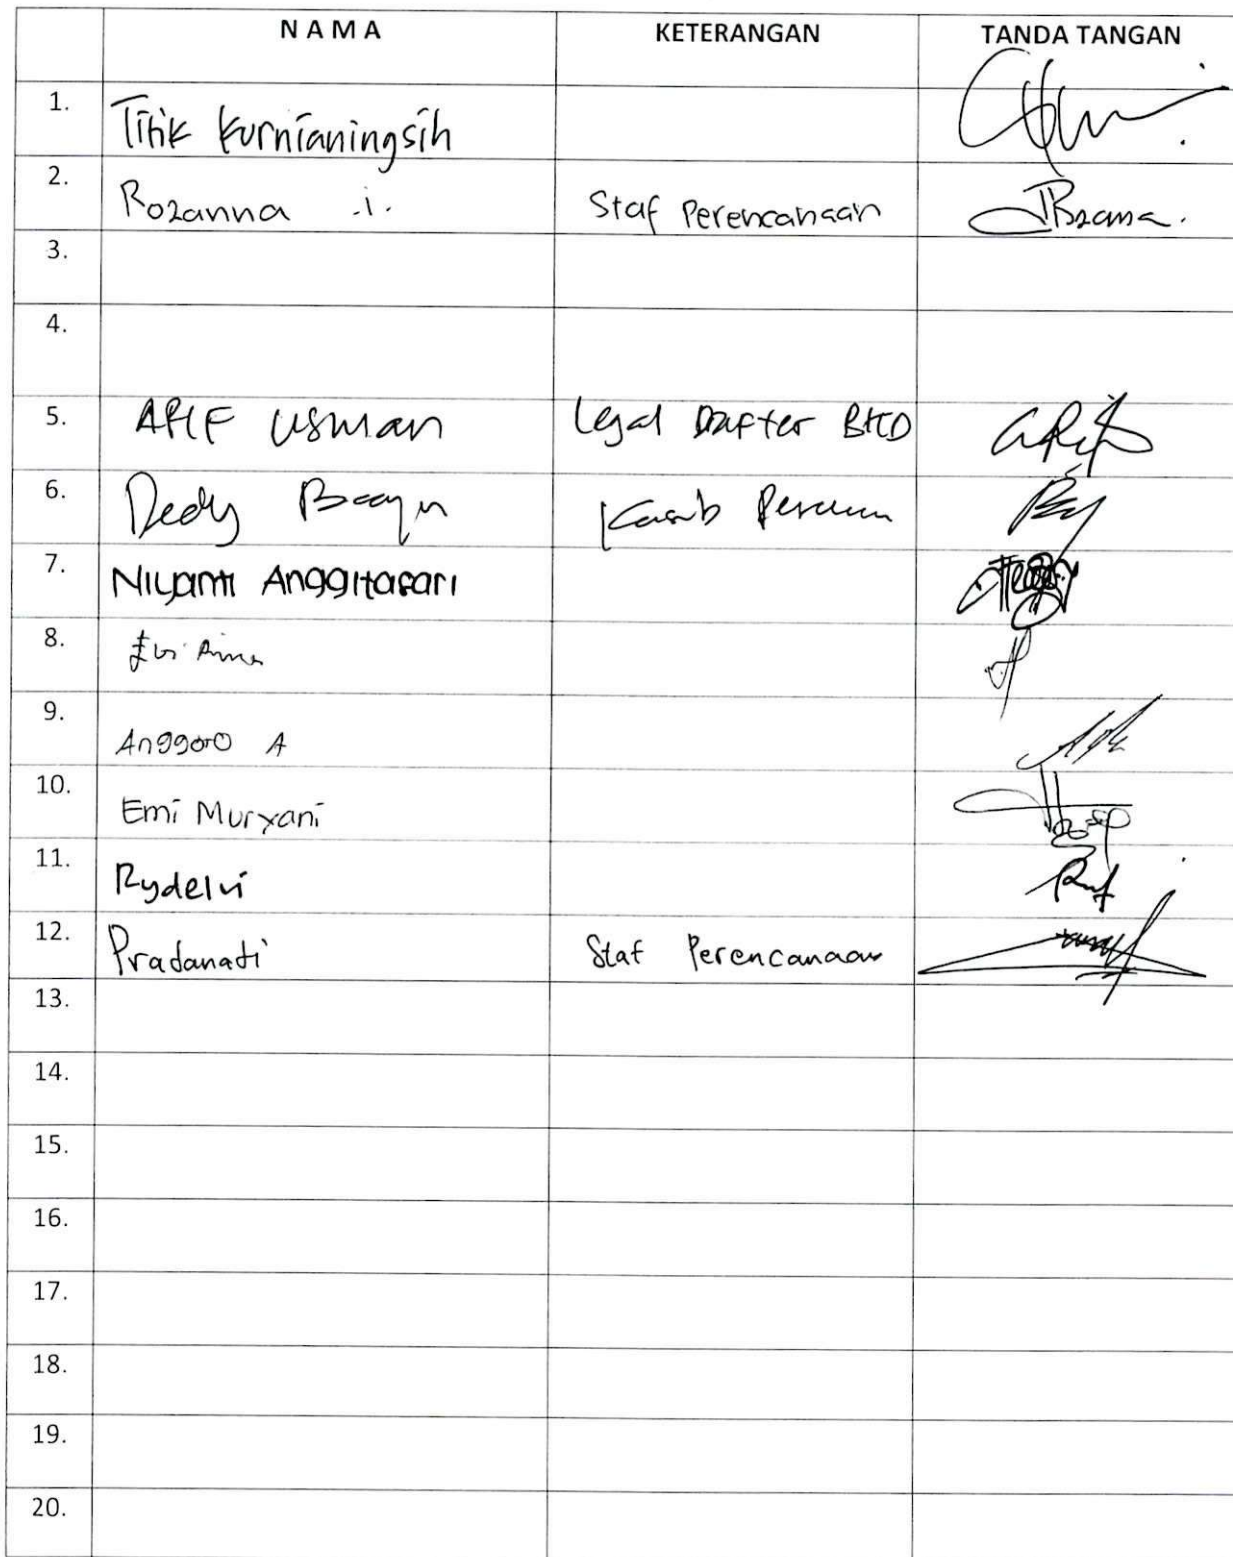 N A M A KETERANGAN TANDA TANGAN
1. Titik Kurnianingsih
2. Rozanna .i. Staf Perencanaan
3.
4.
5. ARIF USMAN Legal Drafter BKD
6. Dedy
7. Niyanti Anggitasari
8.
9. Anggoro A
10. Emi Muryani
11. Rydelvi
12. Pradanati Staf Perencanaan
13.
14.
15.
16.
17.
18.
19.
20.